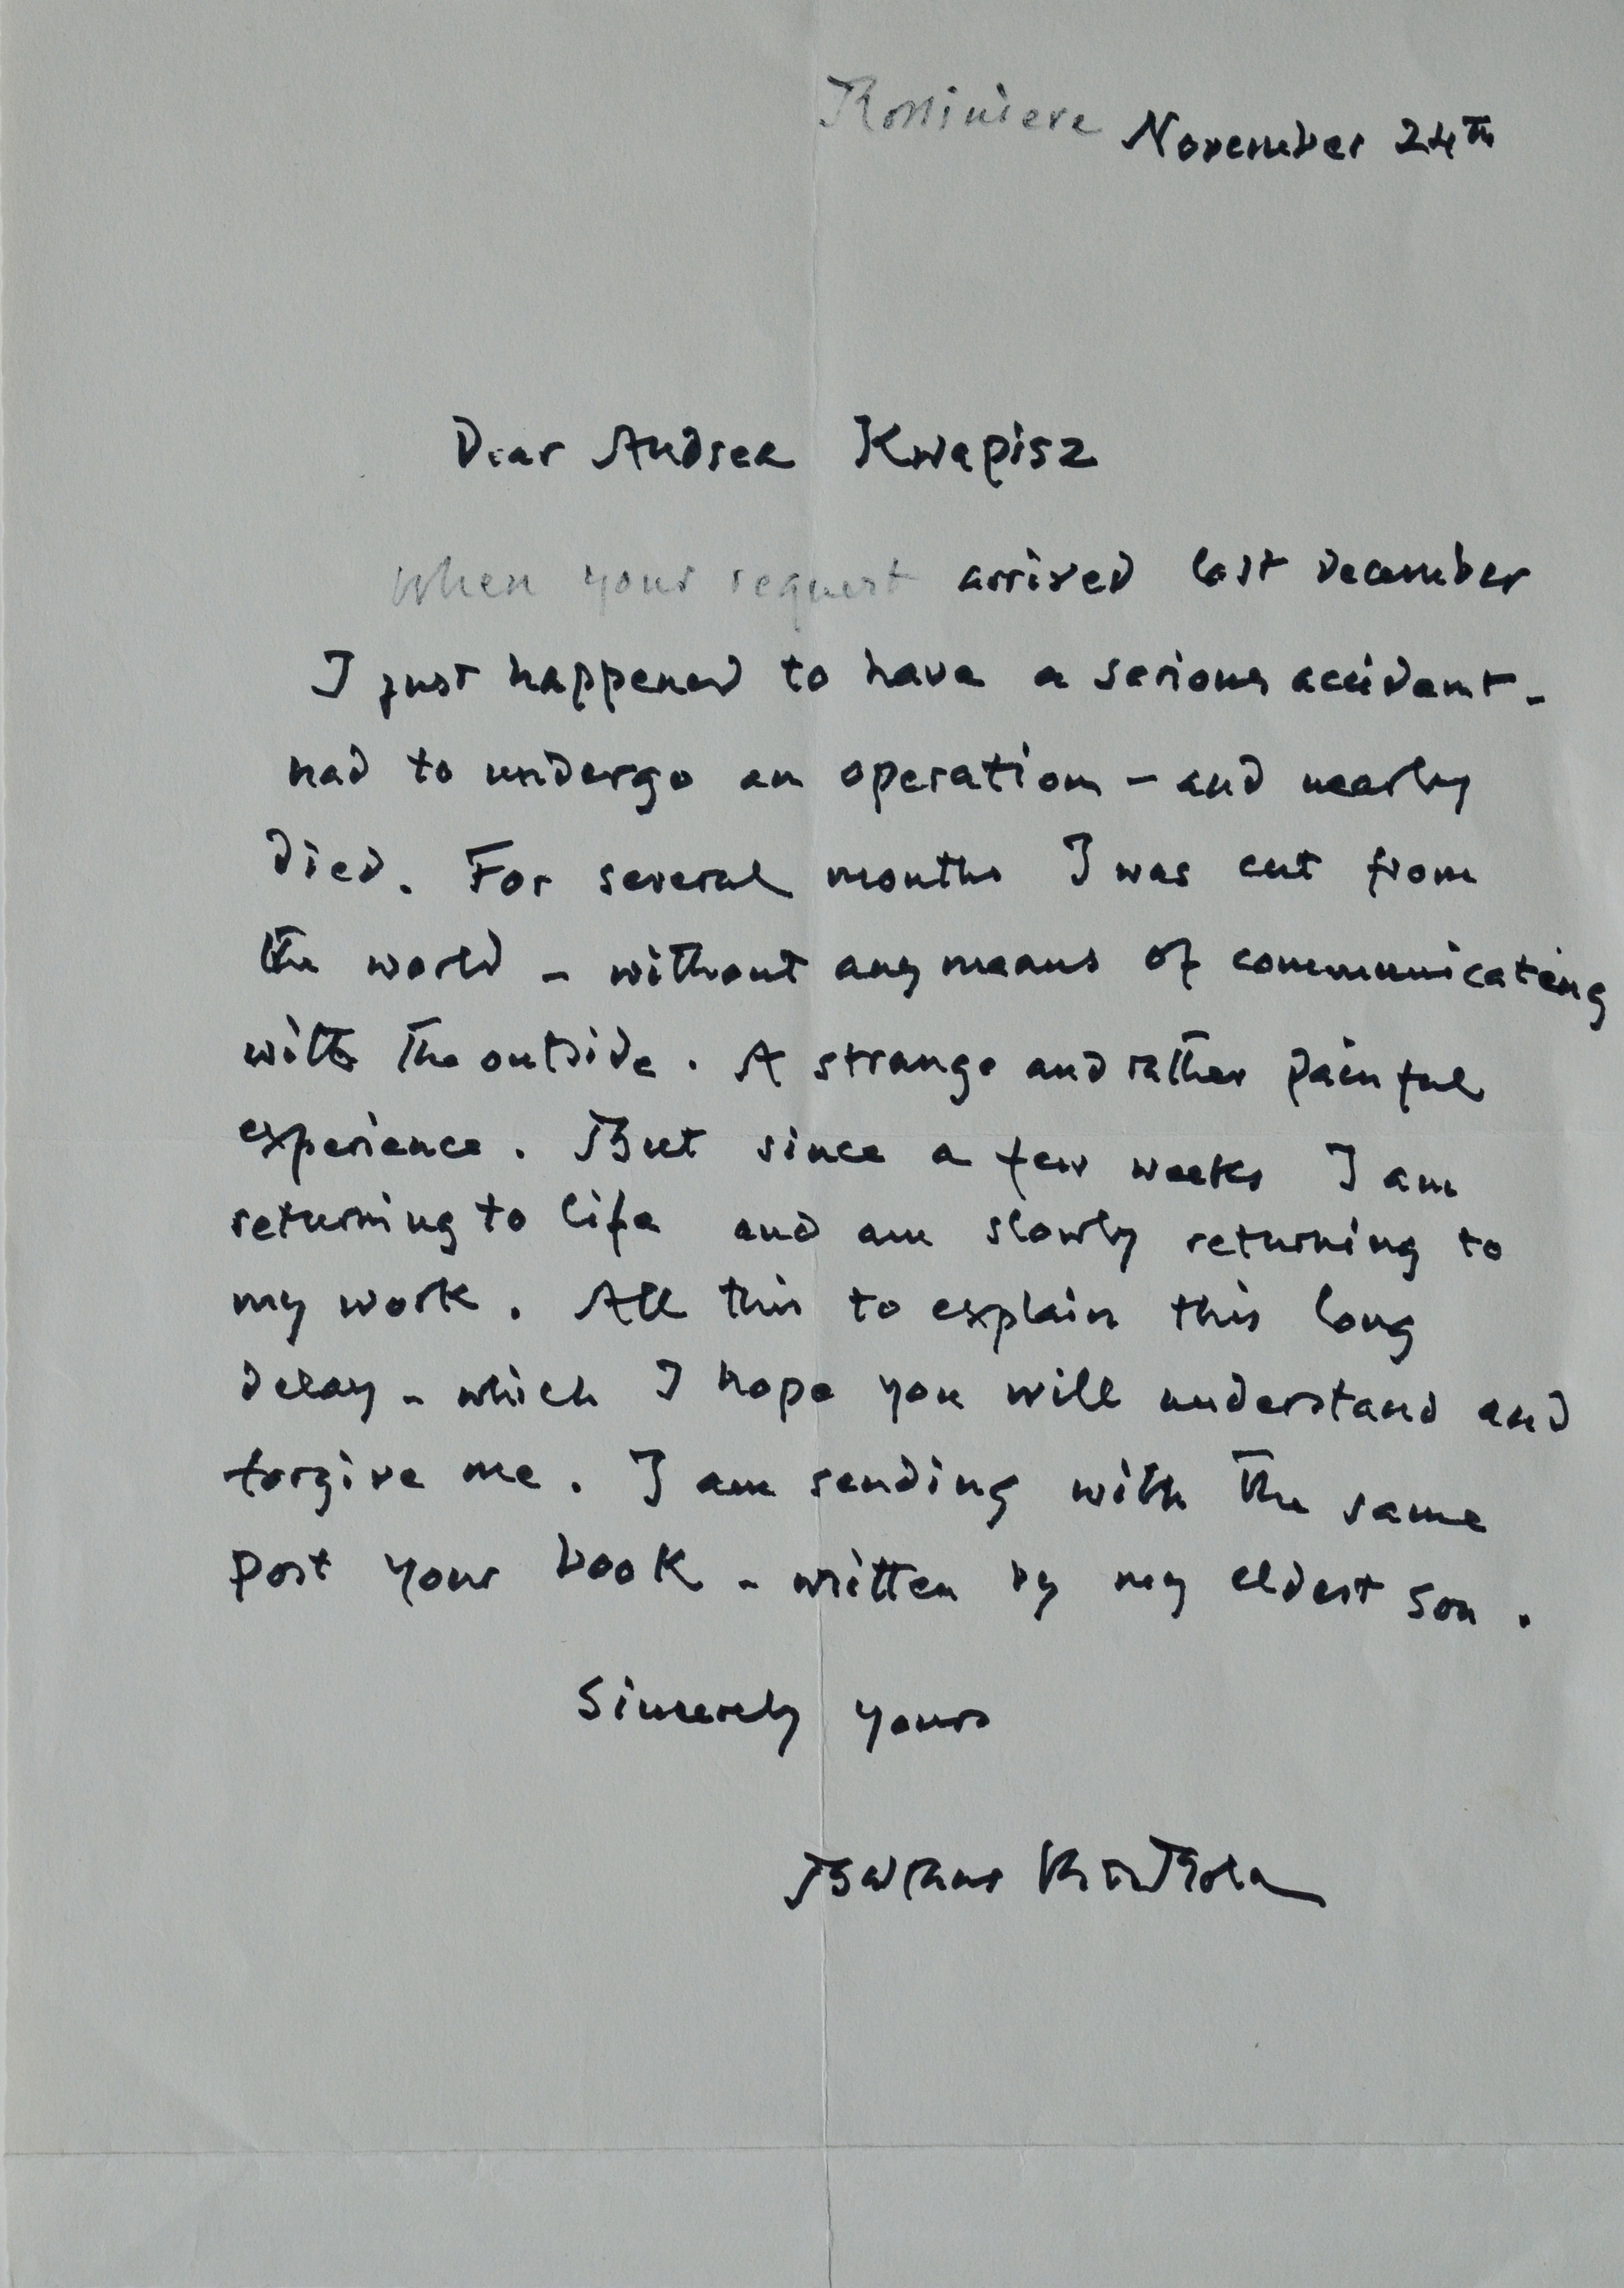 Rossiniere November 24th
Dear Andrea Kwapisz
When your request arrived last december
I just happened to have a serious accident -
had to undergo an operation - and nearly
died. For several months I was cut from
the world - without any means of communicating
with the outside. A strange and rather painful
experience. But since a few weeks I am
returning to life and am slowly returning to
my work. All this to explain this long
delay - which I hope you will understand and
forgive me. I am sending with the same
post your book - written by my eldest son.
Sincerely yours
Balthus